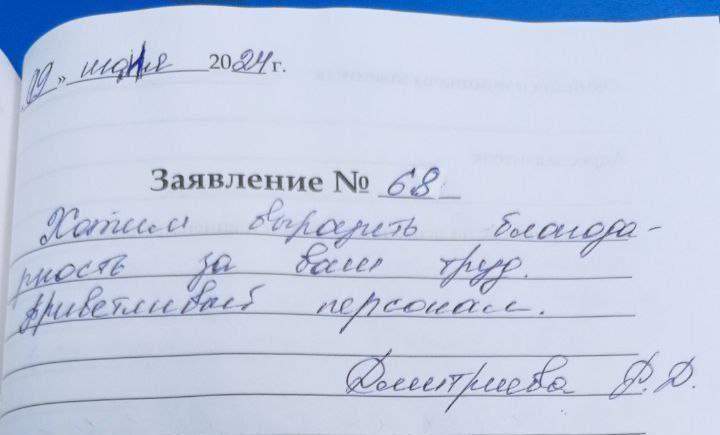 09 » июня 2024 г.
Заявление № 68
Хотим выразить благода-
рность за ваш труд.
приветливый персонал.
Дмитриева Р.Д.